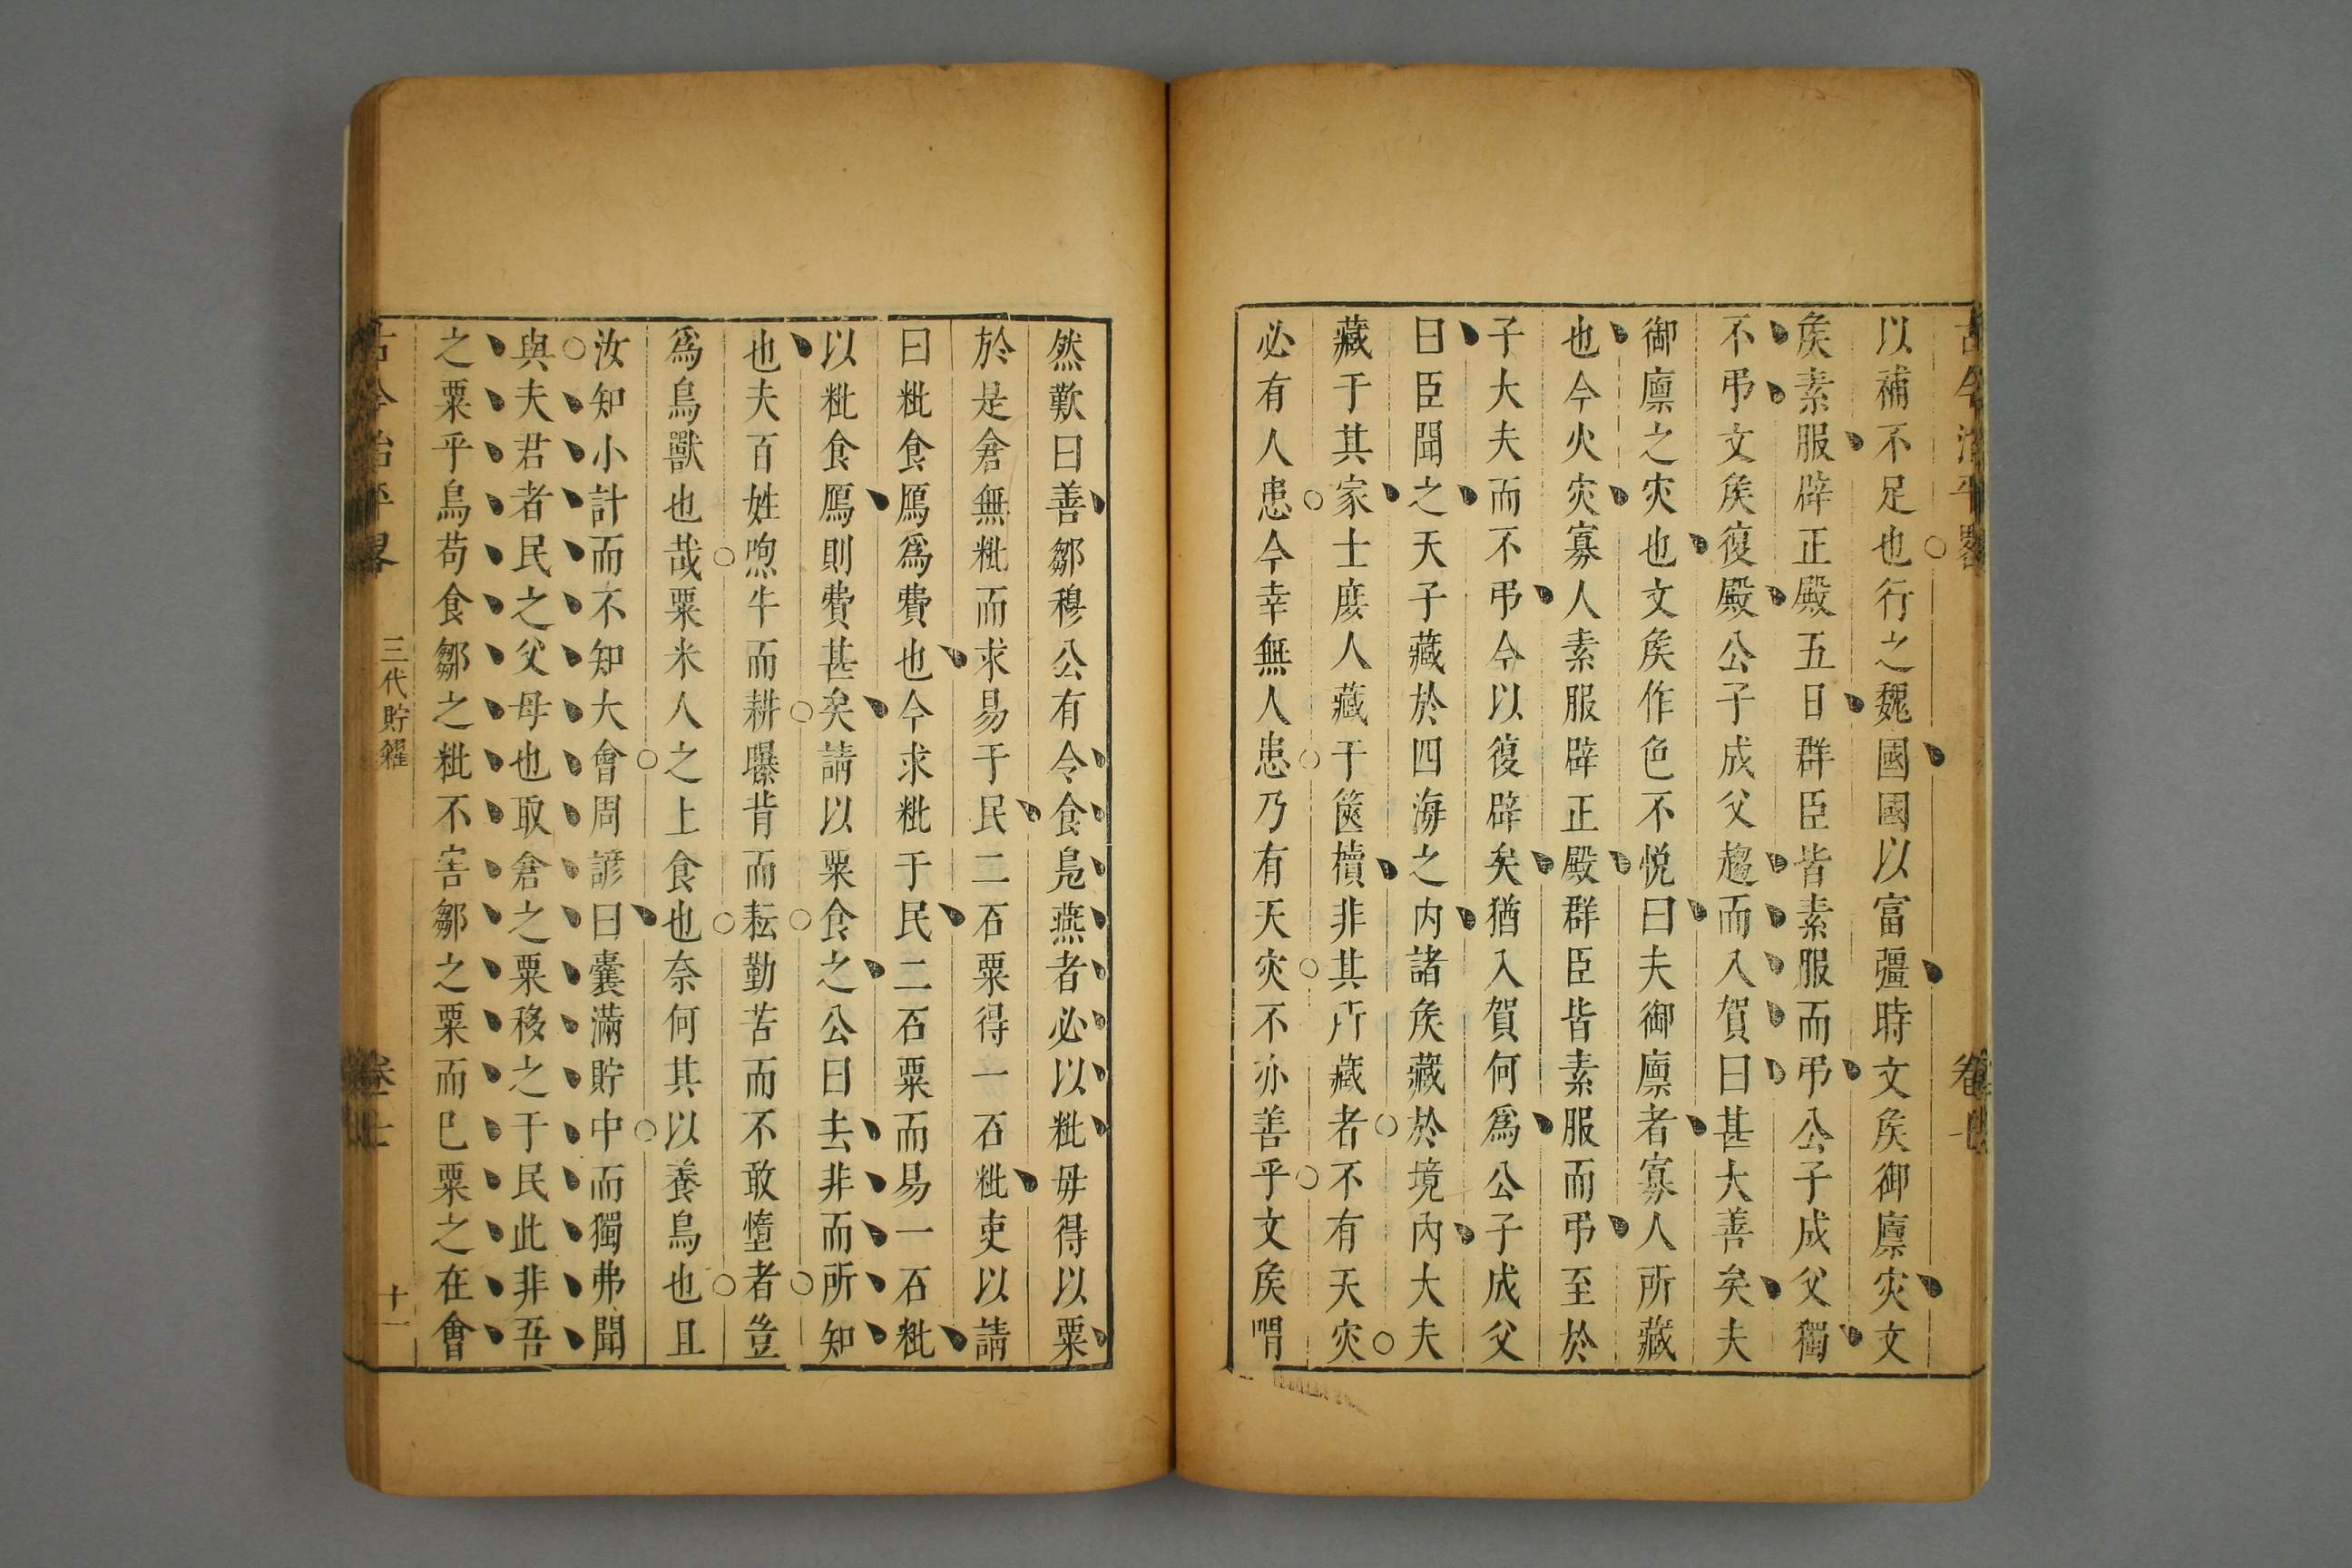 以補不足也行之魏國國以富彊時文矦御廪灾文
矦素服辟正殿五日群臣皆素服而弔公子成父獨
不弔文矦復殿公子成父趨而入賀曰甚大善矣夫
御廪之灾也文矦作色不悅曰夫御廪者寡人所藏
也今火灾寡人素服辟正殿群臣皆素服而弔至於
子大夫而不弔今以復辟矣猶入賀何爲公子成父
曰臣聞之天子藏於四海之内諸矦藏於境内大夫
藏于其家士庻人藏于篋櫝非其所藏者不有天灾
必有人患今幸無人患乃有天灾不亦善乎文矦喟
然歎曰善鄒穆公有令食鳬燕者必以粃毋得以粟
於是倉無粃而求易于民二石粟得一石粃吏以請
曰粃食鴈爲費也今求粃于民二石粟而易一石粃
以粃食鴈則費甚矣請以粟食之公曰去非而所知
也夫百姓煦牛而耕曝背而耘勤苦而不敢惰者豈
爲鳥獸也哉粟米人之上食也奈何其以養鳥也且
汝知小計而不知大會周諺曰囊滿貯中而獨弗聞
與夫君者民之父母也取倉之粟移之于民此非吾
之粟乎鳥苟食鄒之粃不害鄒之粟而已粟之在會
古今治平畧 三代貯糴 卷十 十一